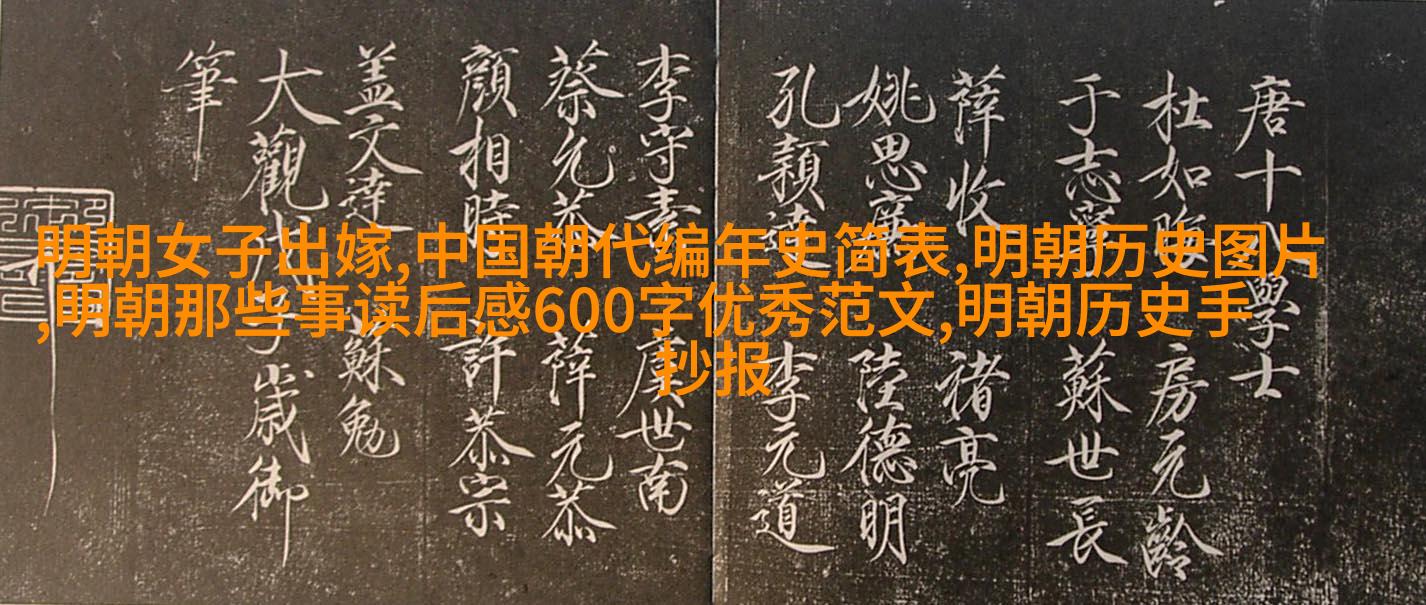 明朝女子出嫁,中国朝代编年史简表,明朝历史图片
,明朝那些事读后感600字优秀范文,明朝历史手
抄报
唐十八學士
杜如晦 房元齡
于志寧 蘇世長
薛收 褚亮
姚思廉 陸德明
孔穎達 李元道
李守素 虞世南
蔡允恭 薛元恭
顏相時 許恭宗
盖文達 蘇勉
大觀戊子歲御
筆